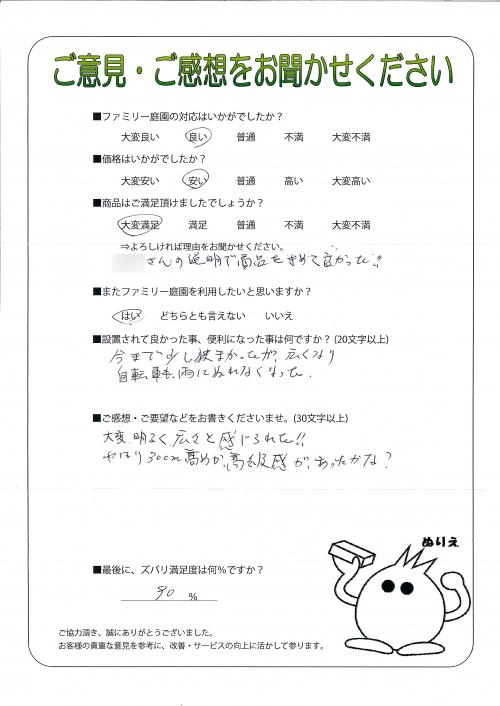 ご意見・ご感想をお聞かせください
■ファミリー庭園の対応はいかがでしたか？
大変良い 良い 普通 不満 大変不満
■価格はいかがでしたか？
大変安い 安い 普通 高い 大変高い
■商品はご満足頂けましたでしょうか？
大変満足 満足 普通 不満 大変不満
⇒よろしければ理由をお聞かせください。
さんの説明で商品をきめて良かった!!
■またファミリー庭園を利用したいと思いますか？
はい どちらとも言えない いいえ
■設置されて良かった事、便利になった事は何ですか？(20文字以上)
今まで少し狭まかったが、広くなり
自転車も雨にぬれなくなった。
■ご感想・ご要望などをお書きくださいませ。(30文字以上)
大変、明るく、広々と感じられた!!
やはり30cm高めが、高級感が、あったかな?
ぬりえ
■最後に、ズバリ満足度は何％ですか？
90 %
ご協力頂き、誠にありがとうございました。
お客様の貴重な意見を参考に、改善・サービスの向上に活かして参ります。